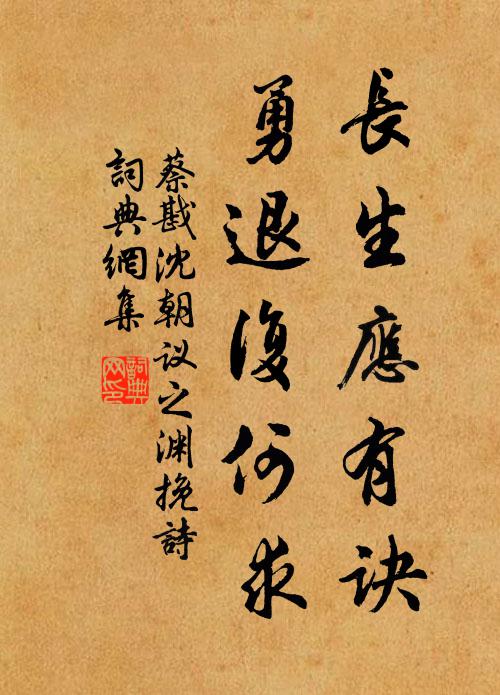 長生應有訣
勇退復何求
蔡戡沈朝议之渊挽詩
詞典網集
詞典
网印